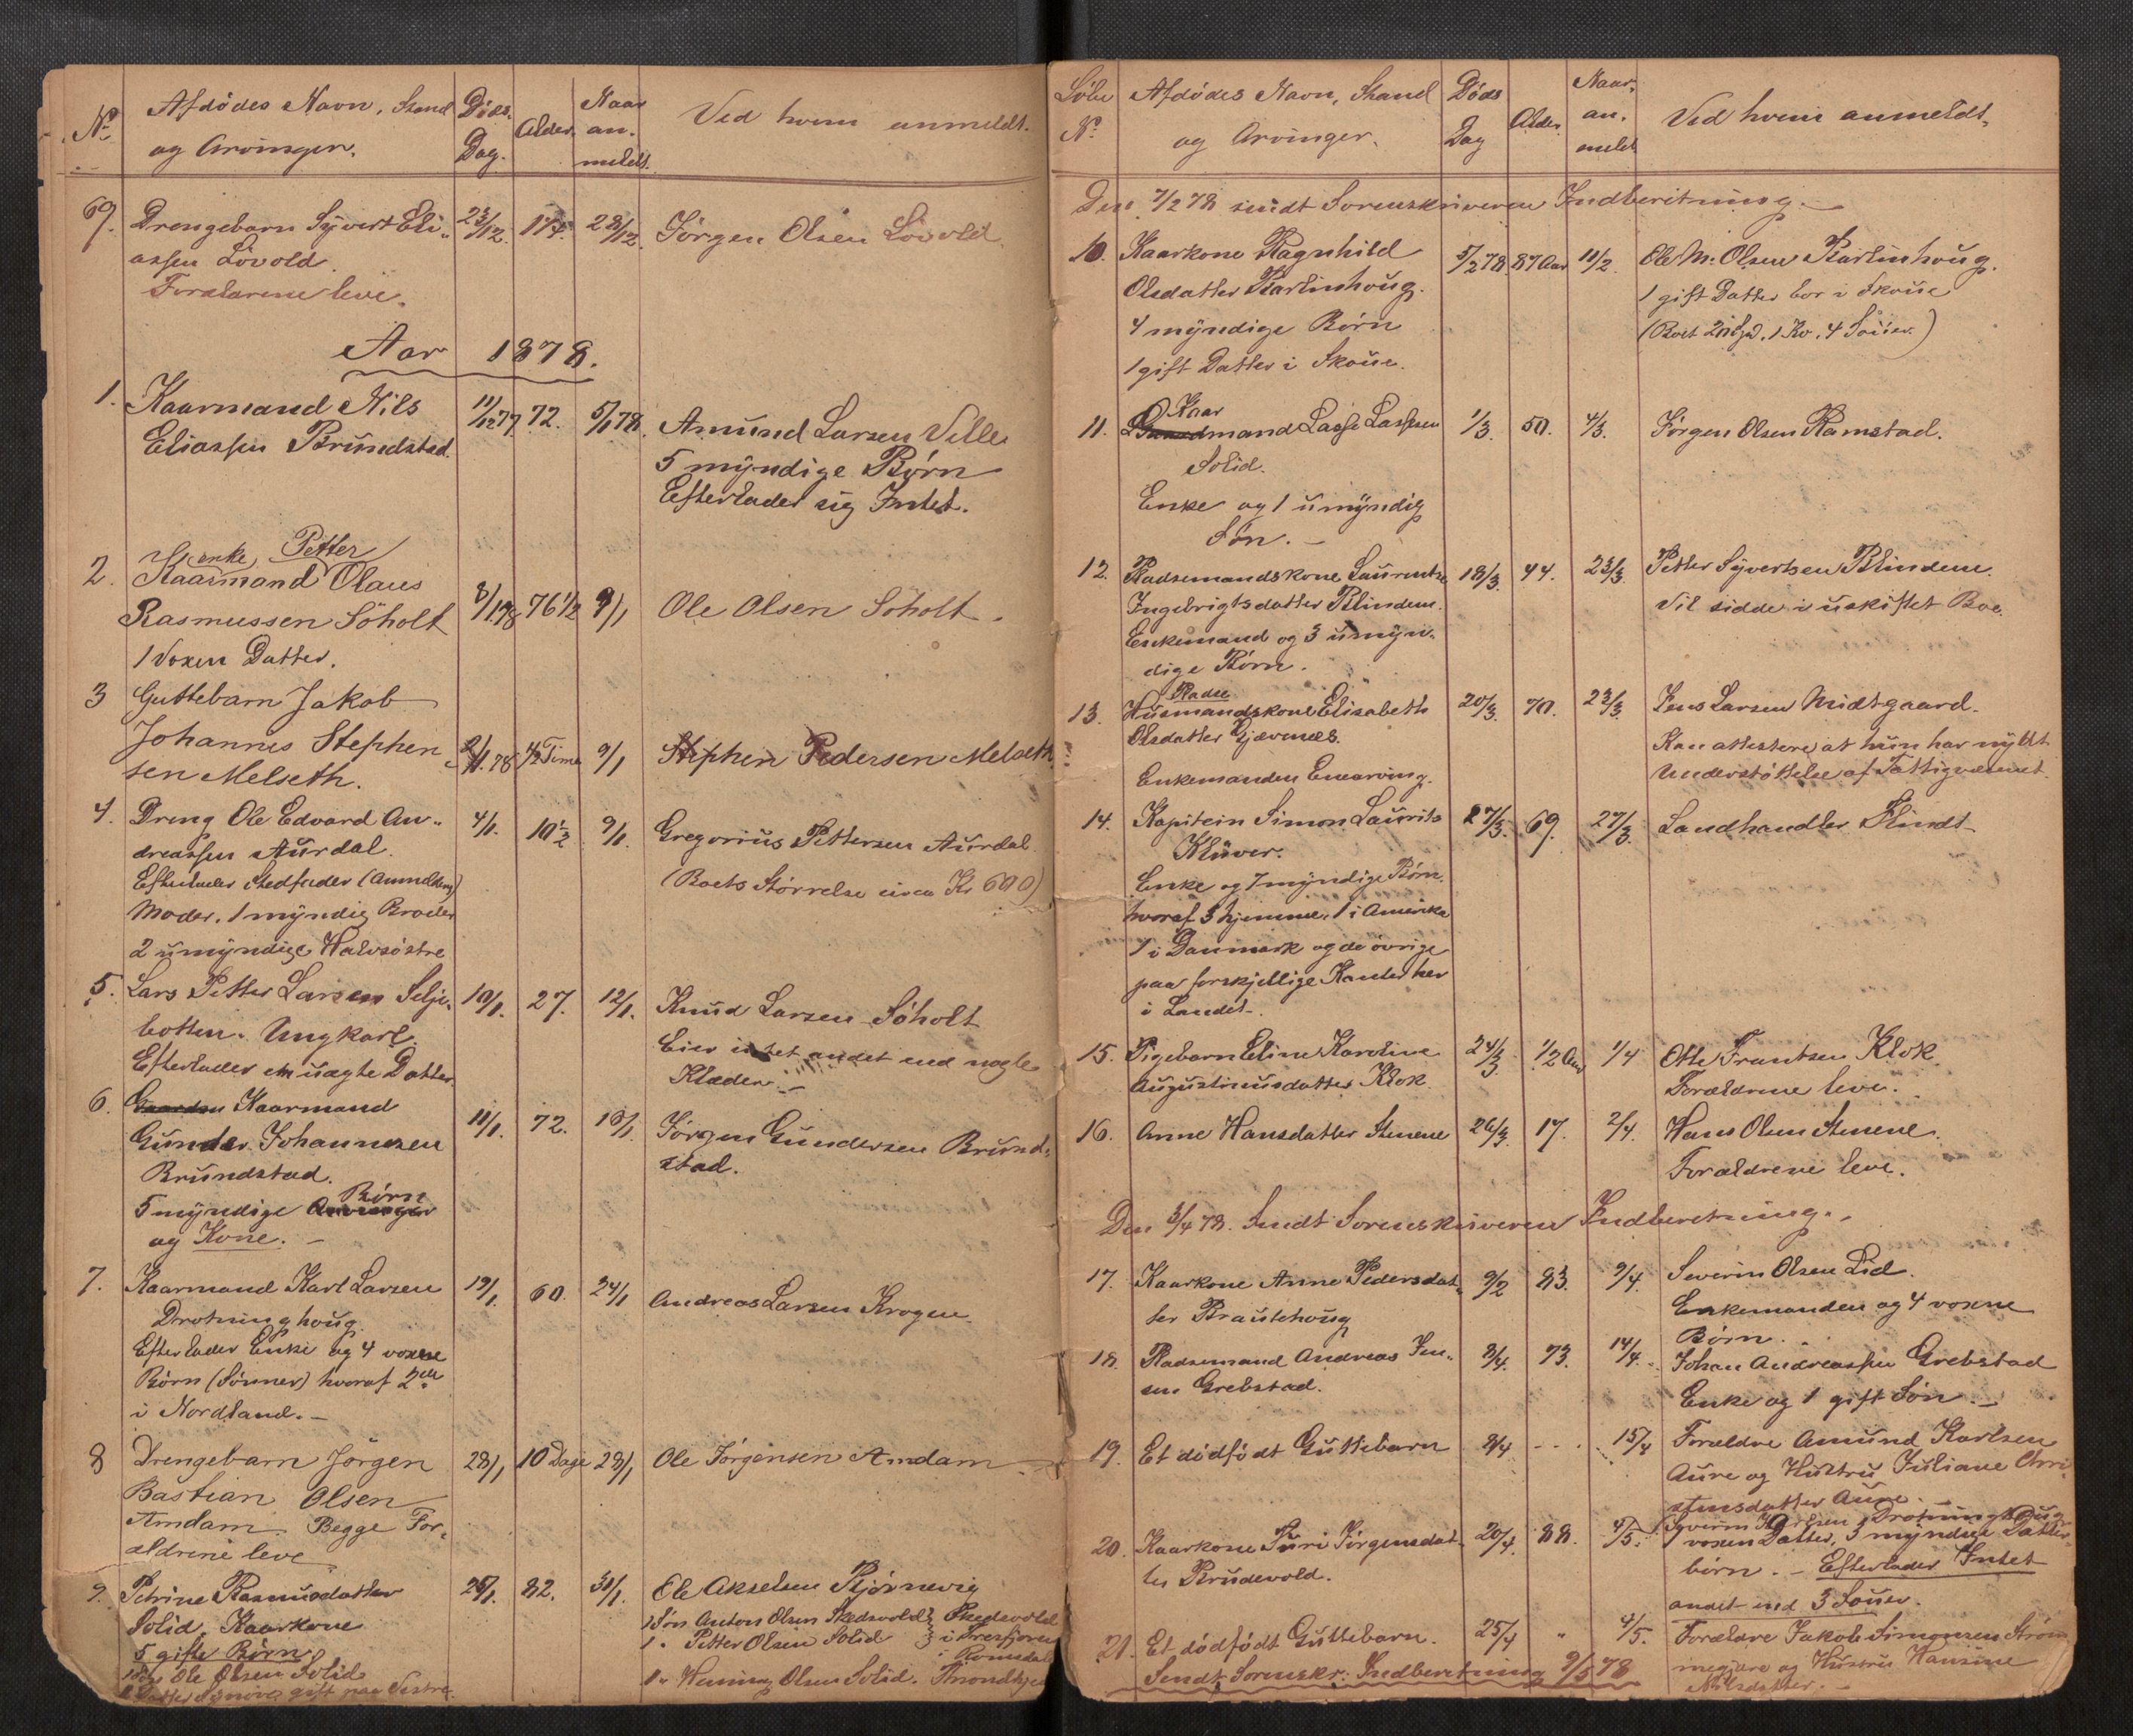 No
Afdödes Navn, Stand
og Arvinger.
Döds.
Dag.
Alder.
Naar
an.
meldt.
Ved hvem anmeldt.
69. Drengebarn Syvert Eli„ 23/12. 28/12. Jörgen Olsen Lövold
assen Lövold.
Forældrene leve.
Aar 1878.
1. Kaarmand Nils 11/12 77 72. 5/1 78. Amund Larsen Velle
Eliassen Brundstad. 5 myndige Børn
Efterlader sig Intet.
enke, Petter
2. Kaarmand Olaus
Rasmussen Söholt 3/1 78 76 1/2 9/1 Ole Olsen Söholt.
1 Voxen Datter.
3 Guttebarn Jakob
Johannes Stephen
sen Melseth. 2/1. 78 1/2 Time 9/1 Stephen Pedersen Melseth
4. Dreng Ole Edvard An„ 4/1. 10 1/2 9/1. Gregorius Pettersen Aurdal
dreassen Aurdal. (Boets Störrelse circa Kr 600)
Efterlader Stedfader (Anmelder)
Moder, 1 myndig Broder
2 umyndige Halvsöstre
5. Lars Petter Larsen Selje„ 10/1. 27. 12/1. Knud Larsen Söholt
botten. Ungkarl. Eier intet andet end nogle
Efterlader en uægte Datter Klæder. –
6. Gaardm Kaarmand
Gunder Johannesen 11/1. 72. Jörgen Gundersen Brund„
Brundstad. stad.
Børn
5 myndige Arvinger
og Kone. –
7. Kaarmand Karl Larsen 19/1. 60. 24/1 Andreas Larsen Krogen.
Drotninghoug.
Efterlader Enke og 4 voxne
Børn (Sönner) hvoraf 2de
i Nordland. –
8 Drengebarn Jörgen 28/1 10 Dage 28/1 Ole Jörgensen Amdam
Bastian Olsen
Amdam. Begge For„
ældrene leve
9. Petrine Rasmusdatter 25/1. 82. 30/1. Ole Akselsen Bjørnevig
Solid, Kaarkone 1 Søn Anton Olsen Skedsvold Skedsvold
5 gifte Børn 1 „ Petter Olsen Solid i Tresfjorden
i Romsdal
1 Søn Ole Olsen Solid 1 „ Henning Olsen Solid. Throndhjem
1 Datter Synöve gift paa Sestre.
Löbe
No
Afdödes Navn, Stand
og Arvinger.
Döds
Dag
Alder.
Naar
an.
meldt
Ved hvem anmeldt.
Den 7/2 78 sendt Sorenskriveren Indberetning. –
10. Kaarkone Ragnhild 5/2 78. 87 Aar 11/2. Ole M. Olsen Karlinhoug.
Olsdatter Karlinhoug. 1 gift Datter bor i Skoue
4 myndige Børn (Boet 1 Ko. 4 Souer.)
1 gift Datter i Skoue.
Kaar
11. mand Lasse Lassesen 1/3. 50. 4/3. Jörgen Olsen Ramstad.
Solid.
Enke og 1 umyndig
Søn. –
12. Pladsemandskone Laurentse 18/3. 44. 23/3. Petter Syvertsen Blindem.
Ingebrigtsdatter Blindem. Vil sidde i uskiftet Boe.
Enkemand og 3 umyn„
dige Børn.
Pladse
13. Husmandskone Elisabeth 20/3. 70. 23/3. Jens Larsen Midtgaard.
Olsdatter Gjævenes. Kan attestere at hun har nydt
Enkemanden Enearving. Understøttelse af Fattigvæsenet.
14. Kapitein Simon Laurits 27/3. 69. 27/3. Landhandler Flindt
Klüver.
Enke og 7 myndige Børn.
hvoraf 3 hjemme, 1 i Amerika
1 i Danmark og de övrige
paa forskjellige Kanter her
i Landet.
15. Pigebarn Eline Karoline 24/3 1/2 Aar 1/4 Otto Frantsen Klok.
Augustinusdatter Klok. Forældrene leve.
16. Anne Hansdatter Stenene 26/3. 17. 2/4. Hans Olsen Stenene.
Forældrene leve.
Den 3/4 78. Sendt Sorenskriveren Indberetning. „
17. Kaarkone Anne Pedersdat„ 9/2 83. 9/4. Severin Olsen Lid.
ter Brautehoug Enkemanden og 4 voxne
Børn.
18. Pladsemand Andreas Jen„ 8/4. 73. 14/4. Johan Andreassen Grebstad
sen Grebstad. Enke og 1 gift Søn. –
19. Et dödfödt Guttebarn 8/4 - . . 15/4 Forældre Amund Karlsen
Aure og Hustru Juliane Chri
stensdatter Aure. –
20. Kaarkone Guri Jörgensdat„ 20/4. 88. 4/5. Syverin Karlsen Drotninghoug
ter Brudevold. 1 voxen Datter, 3 myndige Datter„
børn. – Efterlader Intet
andet end 3 Souer.
21. Et dödfödt Guttebarn. 25/4 „ 4/5. Forældre Jakob Simonsen Ström
megjære og Hustru Hansine
Sendt Sorenskr: Indberetning 9/5 78
Nilsdatter. –